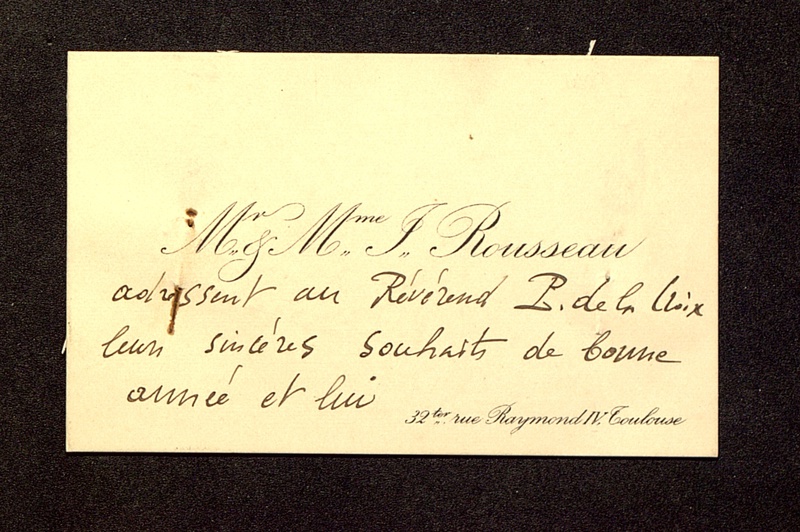 Mr. & Mme J. Rousseau
adressent au Révérend P. de la Croix
leurs sincéres souhaits de bonne
année et lui
32ter. rue Raymond IV. Toulouse